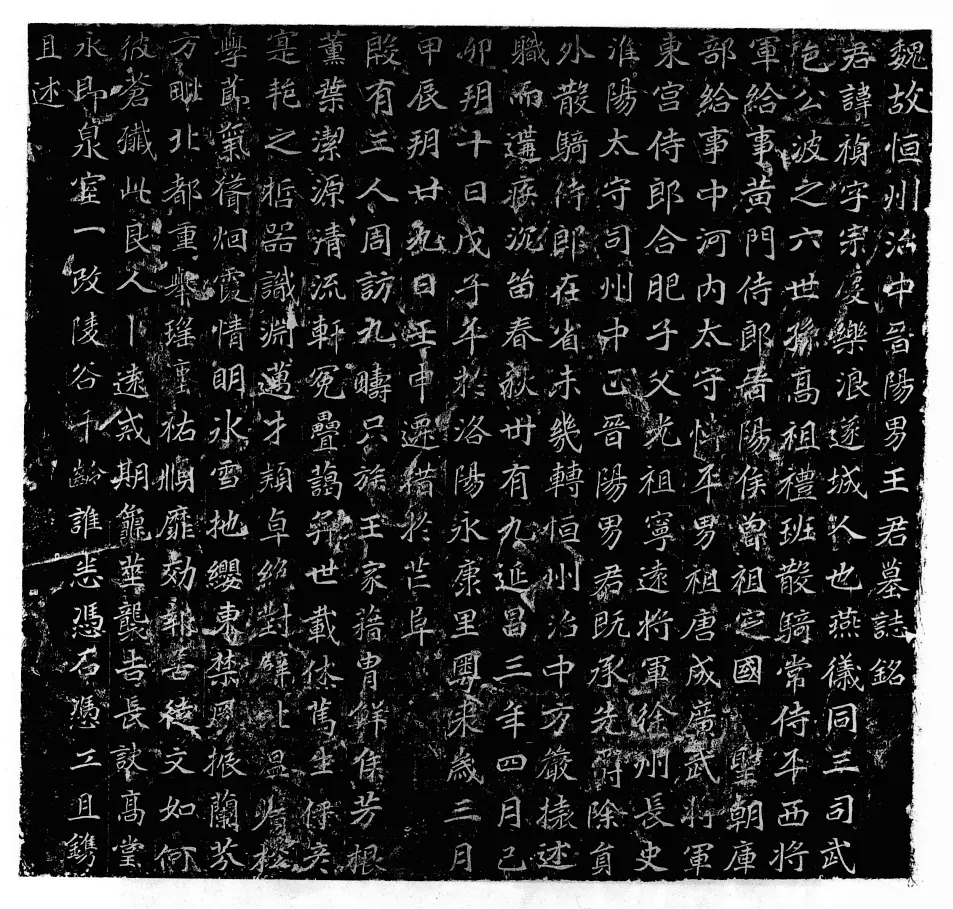 魏故恒州治中晉陽男王君墓誌銘
君諱禎字宗慶樂浪遂城人也燕儀同三司武
邑公波之六世孫高祖禮班散騎常侍平西將
軍給事黃門侍郎晉陽侯曾祖定國聖朝庫
部給事中河內太守博平男祖唐成廣武將軍
東宮侍郎合肥子父光祖寧遠將軍徐州長史
淮陽太守司州中正晉陽男君既承先爵除員
外散騎侍郎在省未幾轉恒州治中方嚴據述
職而遘疾沉笛春秋卅有九延昌三年四月己
卯朔十日戊子卒於洛陽永康里粵來歲三月
甲辰朔廿九日壬申遷措於芒阜
殷有三人周訪九疇只族王家藉胄鮮侯芳根
薰葉潔源清流軒冕疊藹弈世載休篤生俊彥
寔苑之哲器識淵邁才頛卓絕對群上温皆松
孽節氣聳烟霞情明冰雪地纓東禁風振蘭芬
方毗北都重舉瑾璽祐順靡効輔善德文如何
彼蒼殲此良人卜遠戒期龜筮襲吉長訣高堂
永即泉室一改陵谷千齡誰悉憑石憑工且鐫
且述